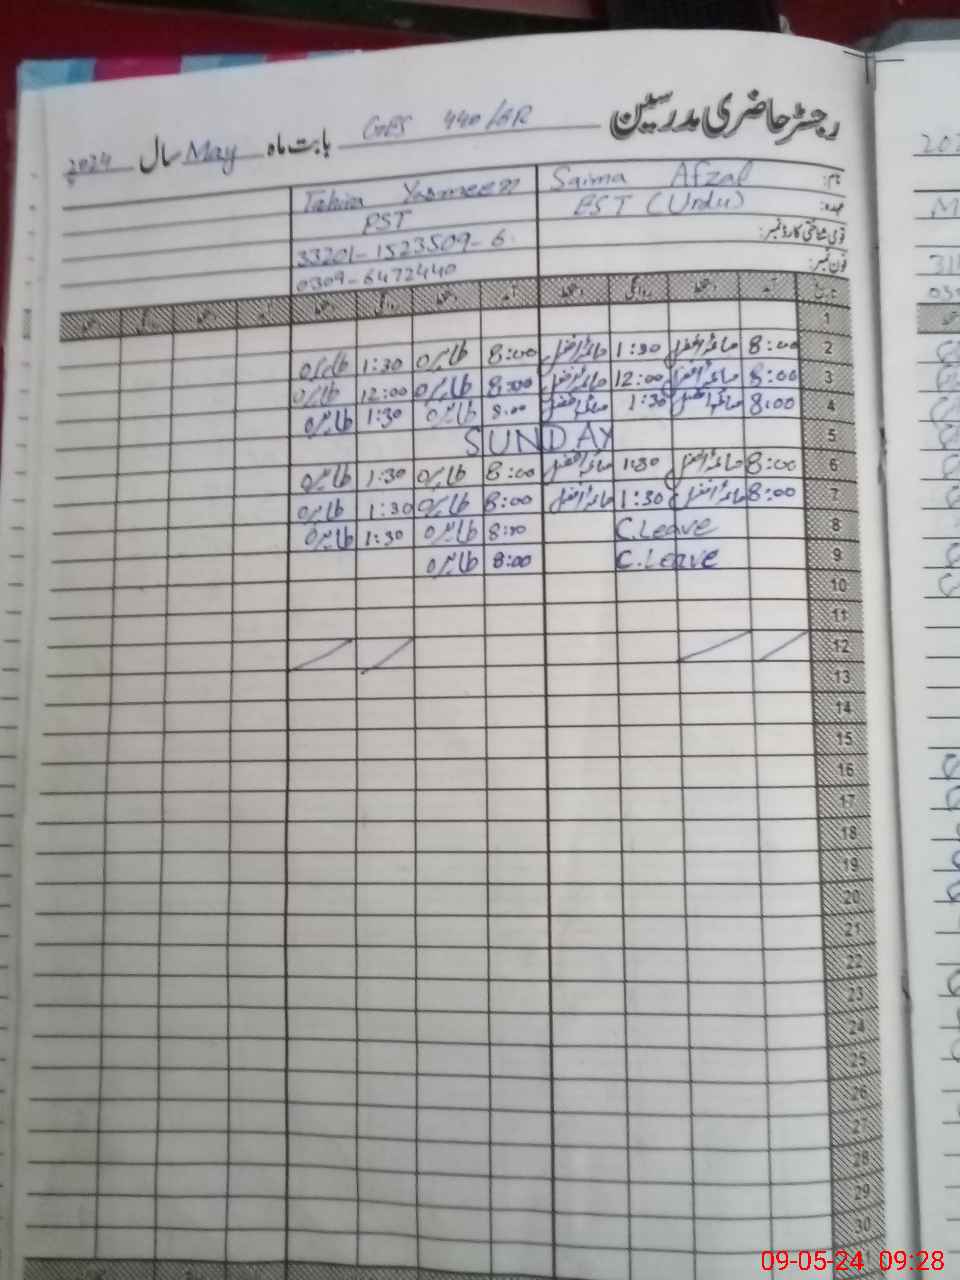 رجسٹر حاضری مدرسین GES 440/GR بابت ماہ May سال 2024
نام: Saima Afzal Tahira Yasmeen
عہدہ: EST (Urdu) PST
قومی شناختی کارڈ نمبر: 33201-1523509-6
فون نمبر: 0309-6472440
تاریخ آمد دستخط روانگی دستخط آمد دستخط روانگی دستخط آمد دستخط روانگی دستخط
1
2 8:00 صائمہ افضل 1:30 صائمہ افضل 8:00 طاہرہ 1:30 طاہرہ
3 8:00 صائمہ افضل 12:00 صائمہ افضل 8:00 طاہرہ 12:00 طاہرہ
4 8:00 صائمہ افضل 1:30 صائمہ افضل 8:00 طاہرہ 1:30 طاہرہ
5 SUNDAY
6 8:00 صائمہ افضل 1:30 صائمہ افضل 8:00 طاہرہ 1:30 طاہرہ
7 8:00 صائمہ افضل 1:30 صائمہ افضل 8:00 طاہرہ 1:30 طاہرہ
8 C.Leave 8:00 طاہرہ 1:30 طاہرہ
9 C.Leave 8:00 طاہرہ
10
11
12
13
14
15
16
17
18
19
20
21
22
23
24
25
26
27
28
29
30
09-05-24 09:28